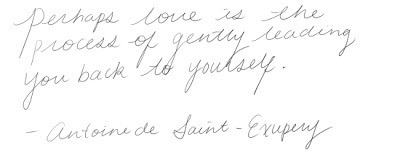 Perhaps love is the
process of gently leading
you back to yourself.
- Antoine de Saint-Exupery